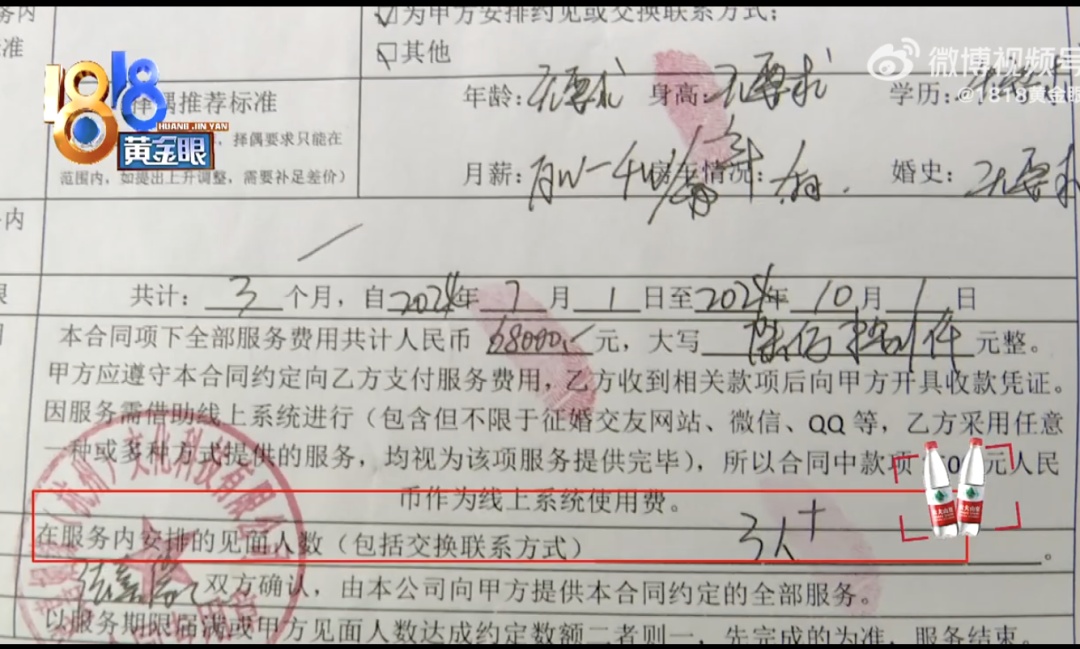 务内 ☑为甲方安排约见或交换联系方式;
准 □其他
1818 黄金眼 HUANG JIN YAN
微博视频号
@1818黄金眼
择偶推荐标准 年龄:无要求 身高:无要求 学历:
择偶要求只能在
范围内,如提出上升调整,需要补足差价) 月薪: 情况: 婚史:无要求
内
限 共计:3个月,自2024年7月1日至2024年10月1日
本合同项下全部服务费用共计人民币68000元,大写 元整。
甲方应遵守本合同约定向乙方支付服务费用,乙方收到相关款项后向甲方开具收款凭证。
因服务需借助线上系统进行(包含但不限于征婚交友网站、微信、QQ等,乙方采用任意
一种或多种方式提供的服务,均视为该项服务提供完毕),所以合同中款项 元人民
币作为线上系统使用费。
在服务内安排的见面人数(包括交换联系方式) 3人+。
双方确认,由本公司向甲方提供本合同约定的全部服务。
以服务期限届满或甲方见面人数达成约定数额二者则一,先完成的为准,服务结束。